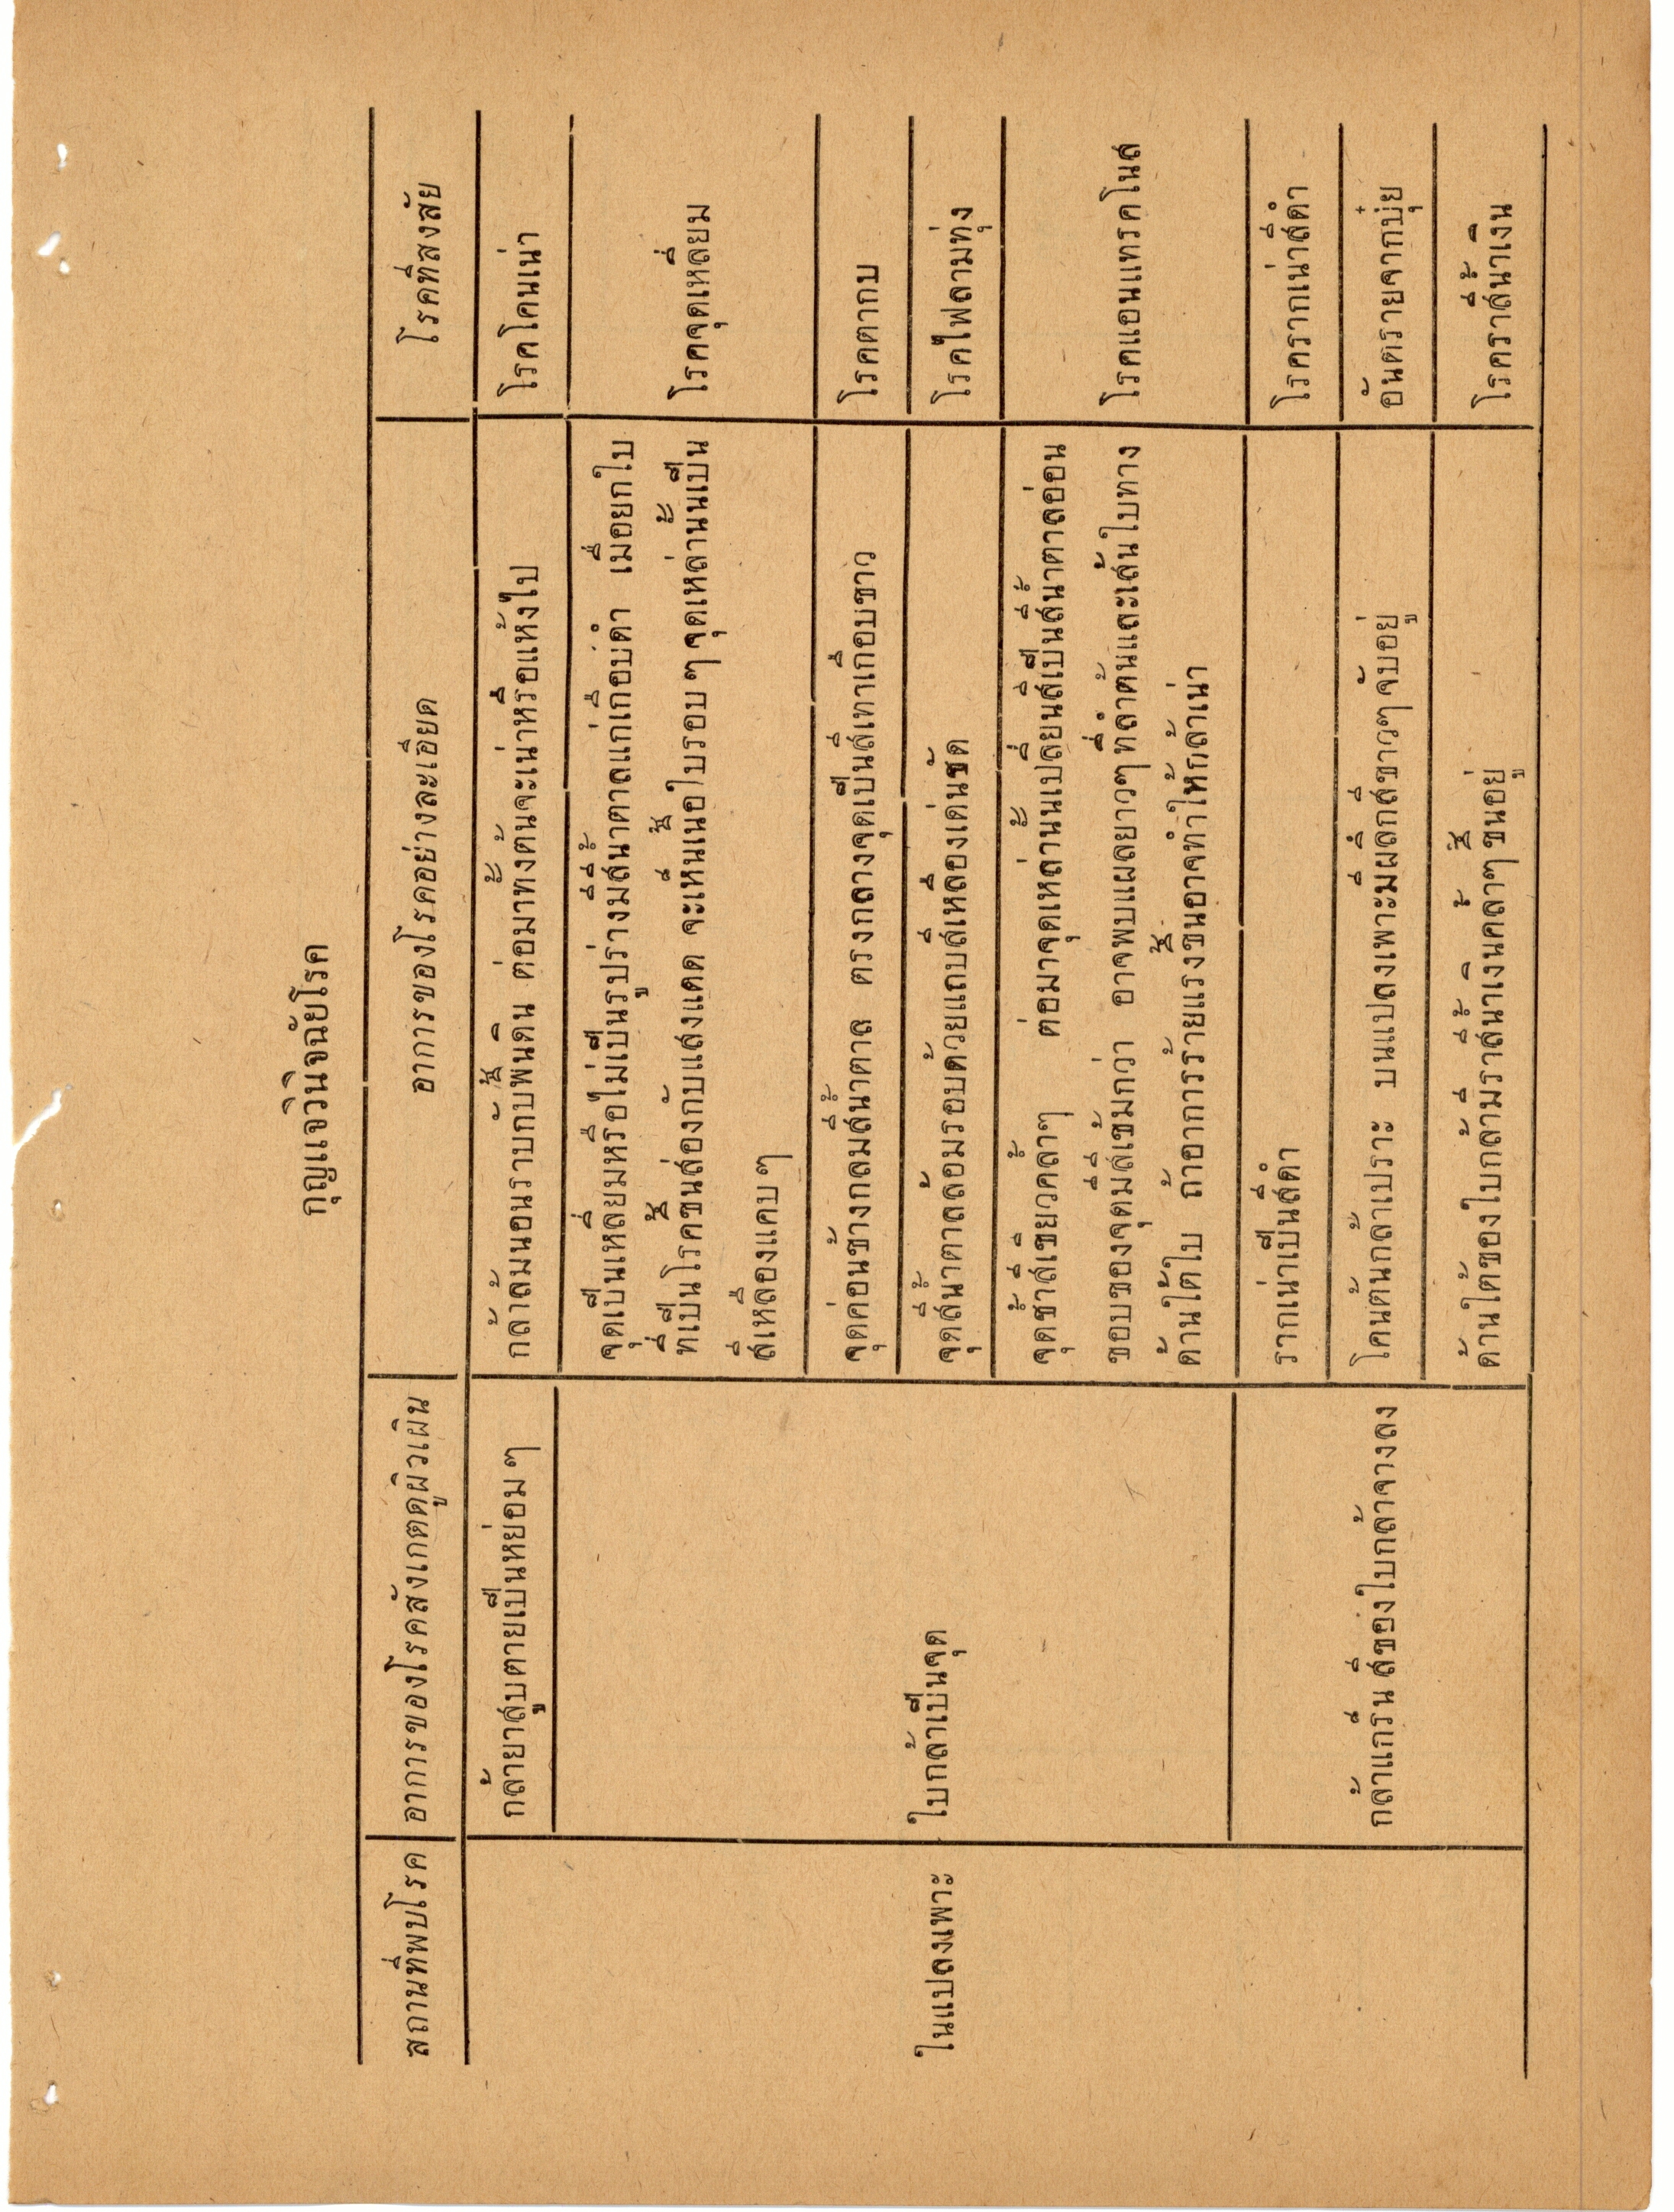 กุญแจวินิจฉัยโรค
สถานที่พบโรค อาการของโรคสังเกตดูผิวเผิน อาการของโรคอย่างละเอียด โรคที่สงสัย
ในแปลงเพาะ
กล้ายาสูบตายเป็นหย่อม ๆ
กล้าล้มนอนราบกับพื้นดิน ต่อมาทั้งต้นจะเน่าหรือแห้งไป
โรคโคนเน่า
ใบกล้าเป็นจุด
จุดเป็นเหลี่ยมหรือไม่เป็นรูปร่างมีสีน้ำตาลแก่เกือบดำ เมื่อยกใบ
ที่เป็นโรคขึ้นส่องกับแสงแดด จะเห็นเนื้อใบรอบ ๆ จุดเหล่านั้นเป็น
สีเหลืองแคบ ๆ
โรคจุดเหลี่ยม
จุดค่อนข้างกลมสีน้ำตาล ตรงกลางจุดเป็นสีเทาเกือบขาว
โรคตากบ
จุดสีน้ำตาลล้อมรอบด้วยแถบสีเหลืองเด่นชัด
โรคไฟลามทุ่ง
จุดช้ำสีเขียวคล้ำๆ ต่อมาจุดเหล่านั้นเปลี่ยนสีเป็นสีน้ำตาลอ่อน
ขอบของจุดมีสีเข้มกว่า อาจพบแผลยาวๆ ที่ลำต้นและเส้นใบทาง
ด้านใต้ใบ ถ้าอาการร้ายแรงขึ้นอาจทำให้กล้าเน่า
โรคแอนแทรคโนส
กล้าแกร็น สีของใบกล้าจางลง
รากเน่าเป็นสีดำ
โรครากเน่าสีดำ
โคนต้นกล้าเปราะ บนแปลงเพาะมีผลึกสีขาวๆ จับอยู่
อันตรายจากปุ๋ย
ด้านใต้ของใบกล้ามีราสีน้ำเงินคล้ำๆ ขึ้นอยู่
โรคราสีน้ำเงิน